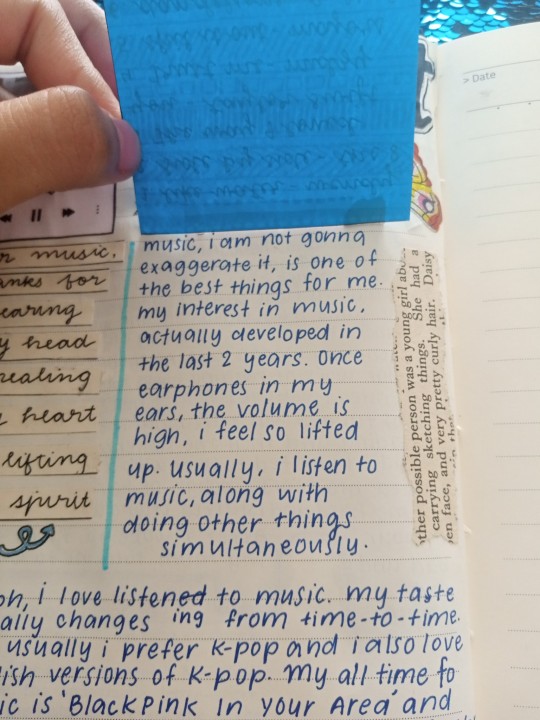 > Date
r music.
anks for
earing
y head
healing
heart
lifting
spirit
music, i am not gonna
exaggerate it, is one of
the best things for me.
my interest in music,
actually developed in
the last 2 years. once
earphones in my
ears, the volume is
high, i feel so lifted
up. usually, i listen to
music, along with
doing other things
simultaneously.
ther possible person was a young girl abou
carrying sketching things. She had a
en face, and very pretty curly hair. Daisy
oh, i love listened to music. my taste
ally changes ing from time-to-time.
usually i prefer K-pop and i also love
lish versions of K-pop. My all time fo
ic is 'BlackPink In Your Area' and